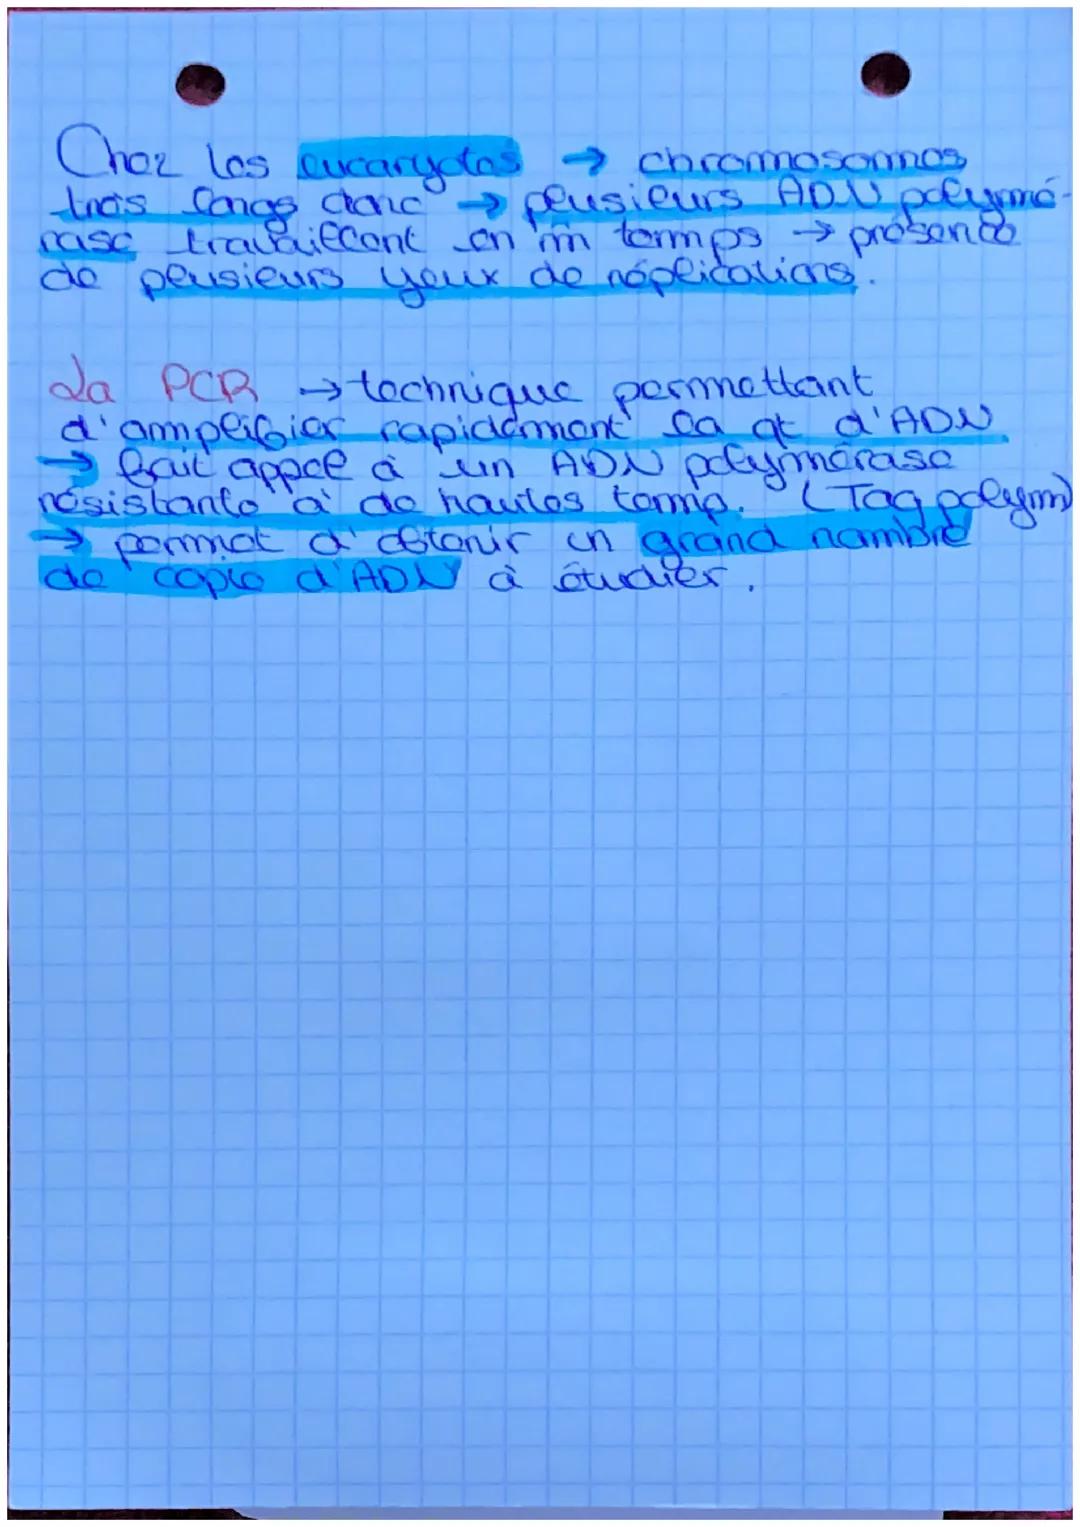 Chez les eucaryotes → chromosomes
très longs donc → plusieurs ADN polymé-
rase travaillant en m̂ temps → présence
de plusieurs yeux de réplications.
La PCR → technique permettant
d'amplifier rapidement la qt d'ADN
→ fait appel à un ADN polymérase
résistante à de hautes temp. (Taq polym)
→ permet d'obtenir un grand nombre
de copie d'ADN à étudier.